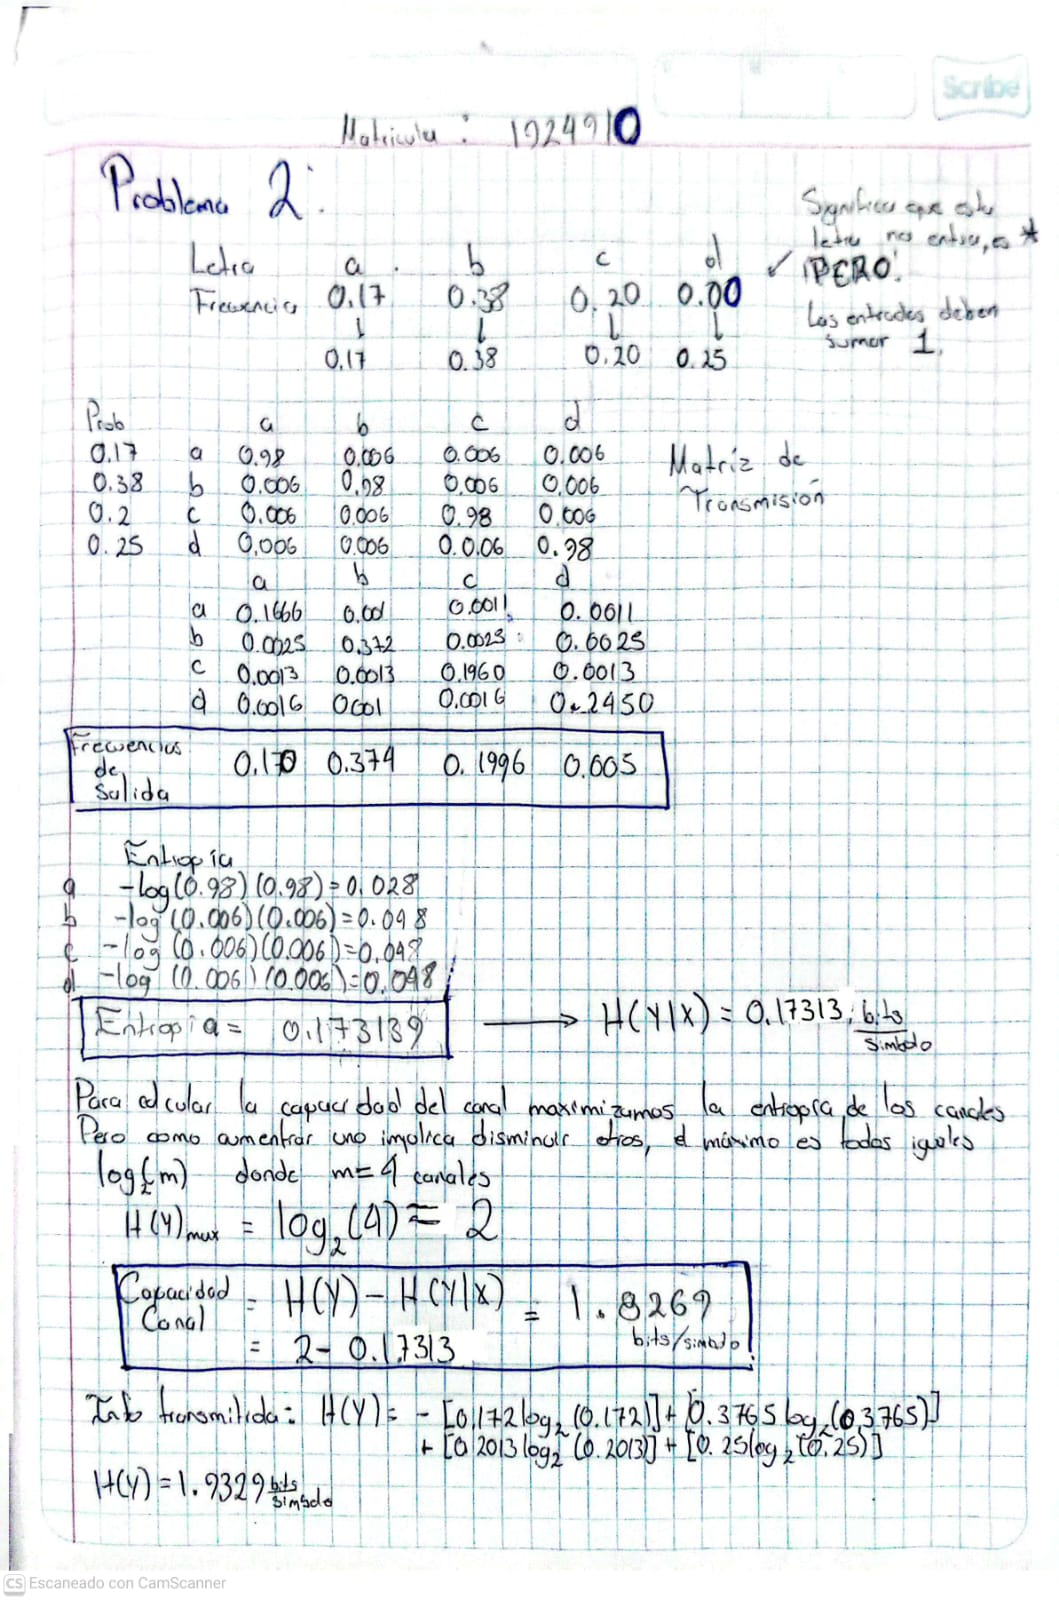 Scribe
Matricula : 1924910
Problema 2:
Significa que esta
letra no entra, es *
¡PERO!
Las entradas deben
sumar 1.
Letra a b c d
Frecuencia 0.17 0.38 0.20 0.00
0.17 0.38 0.20 0.25
Prob a b c d
0.17 a 0.98 0.006 0.006 0.006
0.38 b 0.006 0.98 0.006 0.006
0.2 c 0.006 0.006 0.98 0.006
0.25 d 0.006 0.006 0.0.06 0.98
Matriz de
Transmisión
a b c d
a 0.1666 0.001 0.0011 0.0011
b 0.0025 0.372 0.0025 0.0025
c 0.0013 0.0013 0.1960 0.0013
d 0.0016 0.001 0.0016 0.2450
Frecuencias
de
Salida
0.170 0.374 0.1996 0.005
Entropía
a -log(0.98)(0.98)=0.028
b -log(0.006)(0.006)=0.048
c -log(0.006)(0.006)=0.048
d -log(0.006)(0.006)=0.048
Entropia= 0.173139 → H(Y|X) = 0.17313 bits/simbolo
Para calcular la capacidad del canal maximizamos la entropia de los canales
Pero como aumentar uno implica disminuir otros, el máximo es todos iguales
log₂(m) donde m=4 canales
H(Y)max = log₂(4) = 2
Capacidad Canal = H(Y) - H(Y|X) = 1.8269
= 2 - 0.17313 bits/simbolo
Info transmitida: H(Y)= -[0.172log₂(0.172)]+[0.3765log₂(0.3765)]
+[0.2013log₂(0.2013)]+[0.25log₂(0.25)]
H(Y)=1.9329 bits/simbolo
CS Escaneado con CamScanner